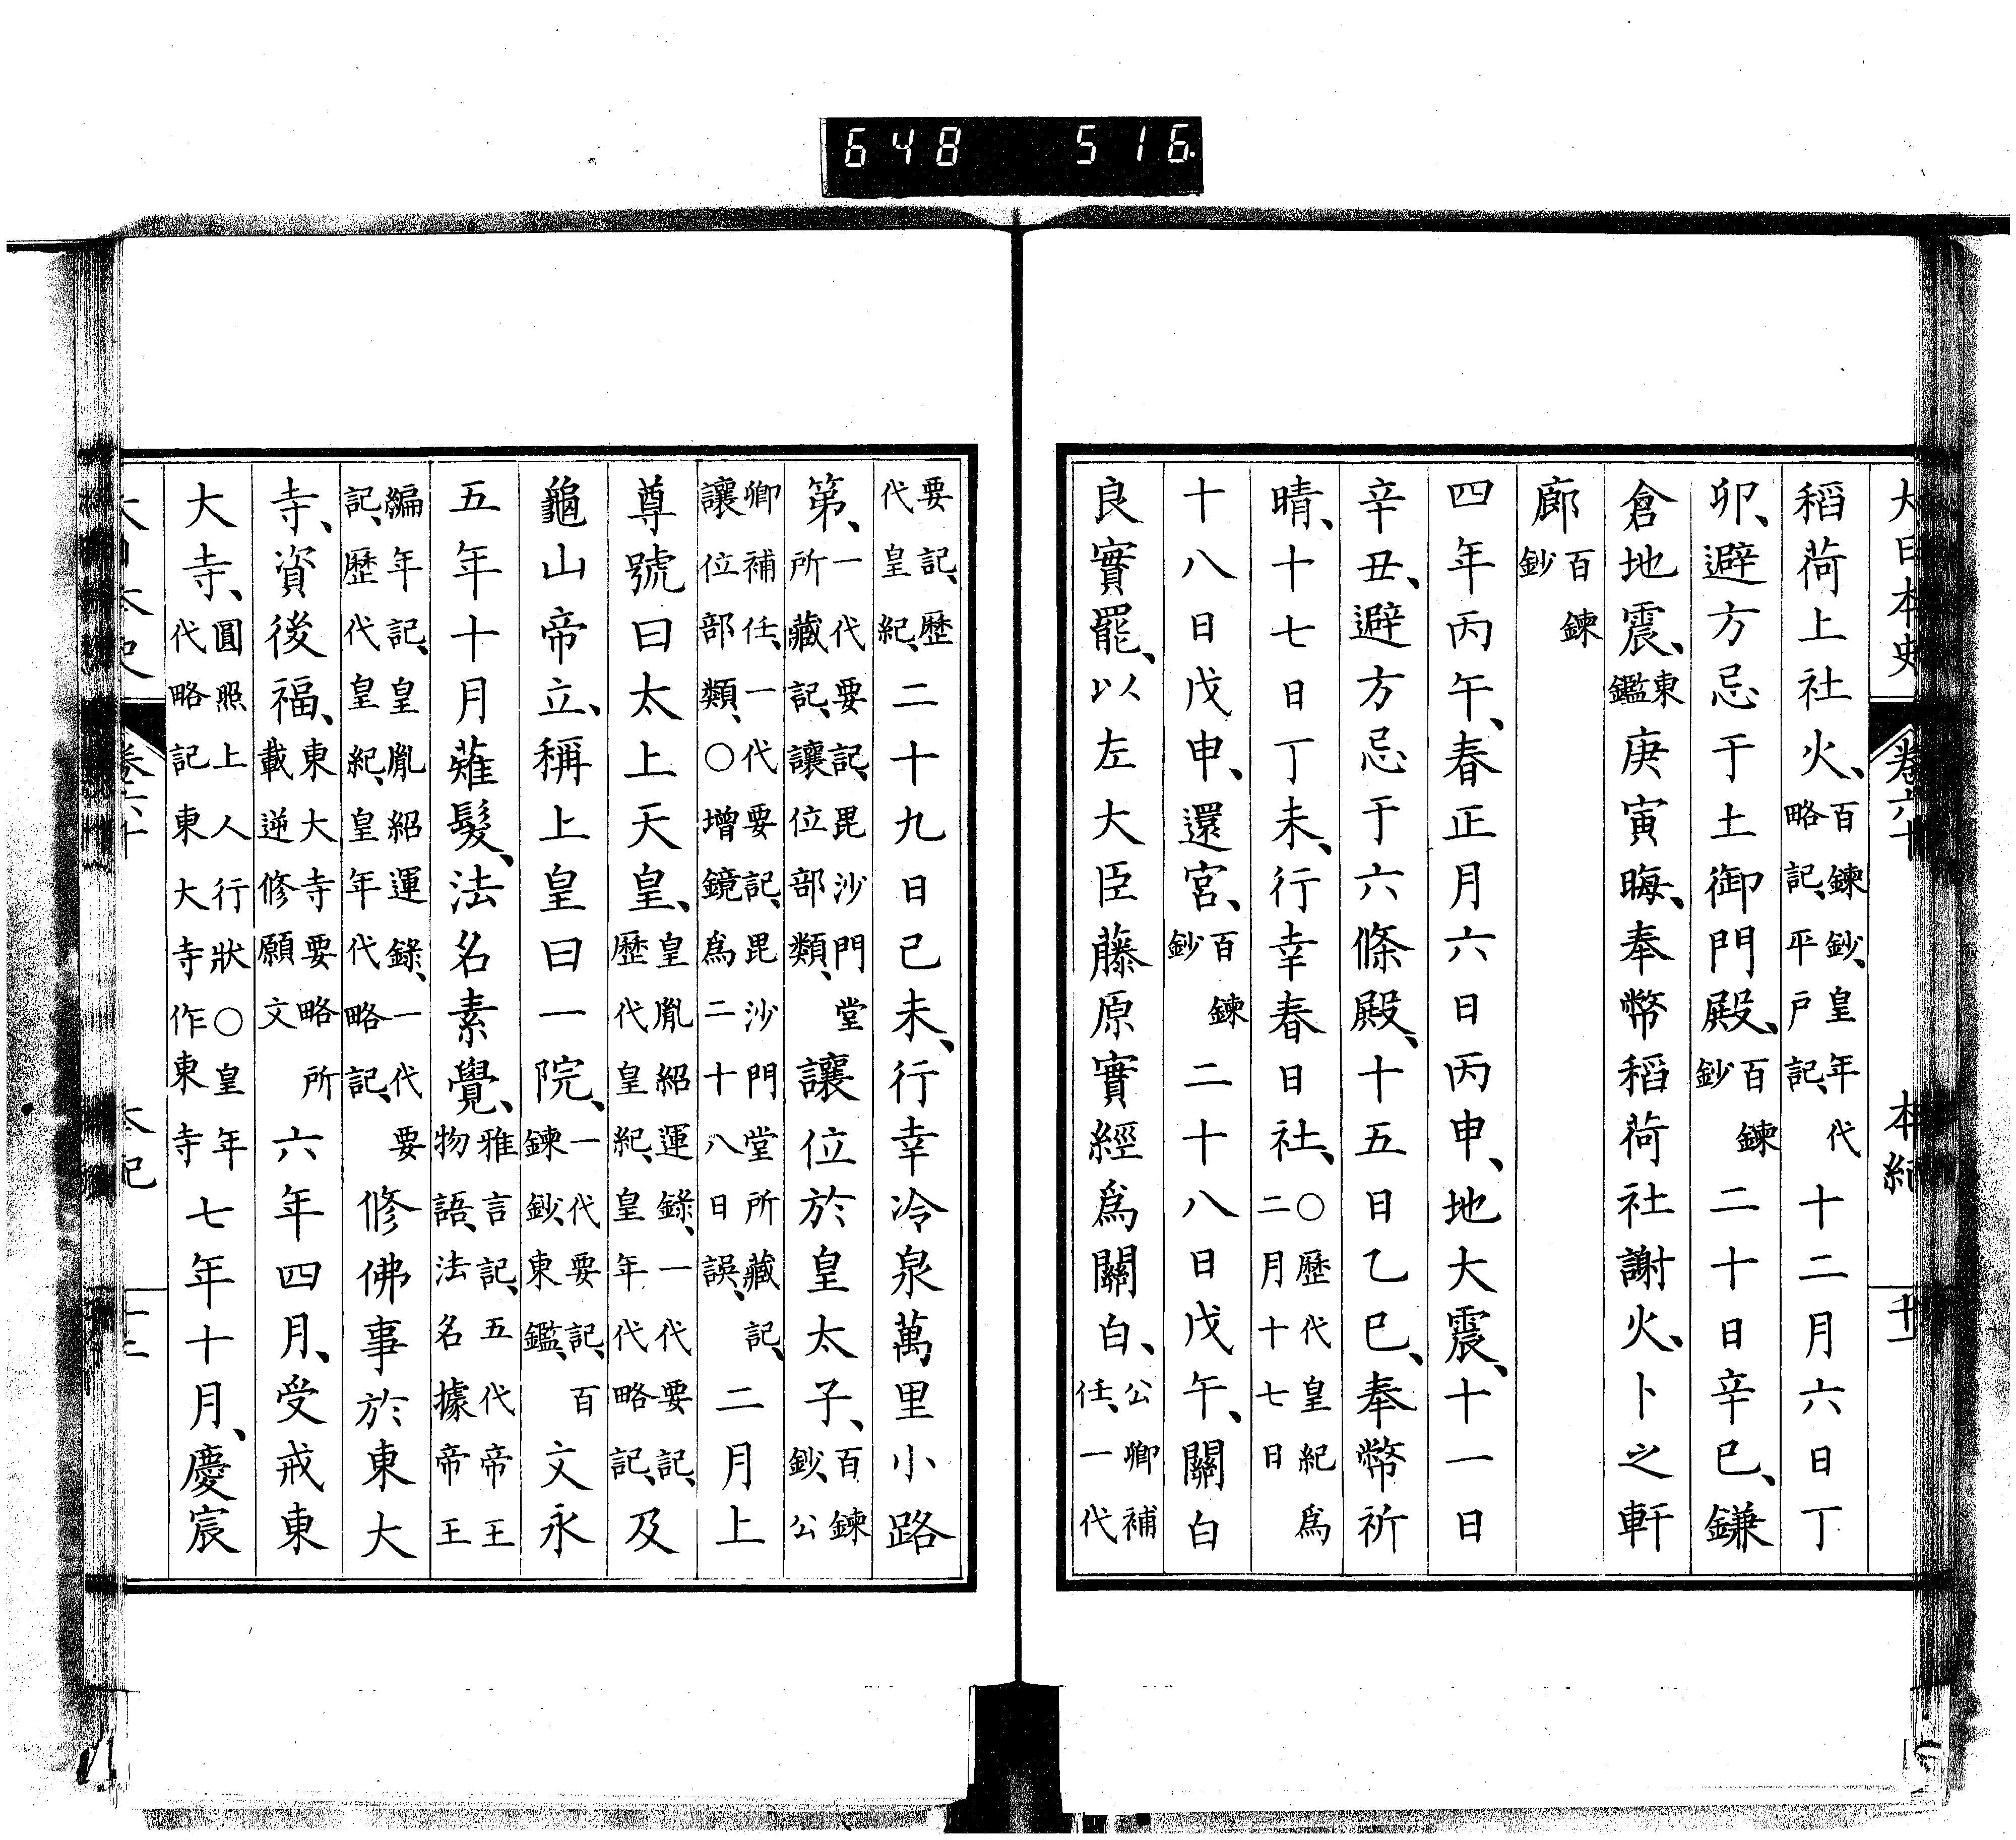 648 516.
大日本史 卷六十 本紀
稻荷上社火、百鍊鈔、皇年代略記、平戸記、十二月六日丁
卯、避方忌于土御門殿、百鍊鈔二十日辛巳、鎌
倉地震、東鑑庚寅晦、奉幣稻荷社謝火、卜之軒
廊百鍊鈔
四年丙午、春正月六日丙申、地大震、十一日
辛丑、避方忌于六條殿、十五日乙巳、奉幣祈
晴、十七日丁未、行幸春日社、○歷代皇紀爲二月十七日
十八日戊申、還宮、百鍊鈔二十八日戊午、關白
良實罷、以左大臣藤原實經爲關白、公卿補任、一代
要記、歷代皇紀、二十九日己未、行幸冷泉萬里小路
第、一代要記、毘沙門堂所藏記、讓位部類、讓位於皇太子、百鍊鈔、公
卿補任、一代要記、毘沙門堂所藏記、讓位部類、○增鏡爲二十八日誤、二月上
尊號曰太上天皇、皇胤紹運錄、一代要記、歷代皇紀、皇年代略記、及
龜山帝立、稱上皇曰一院、一代要記、百鍊鈔、東鑑、文永
五年十月薙髮、法名素覺、雅言記、五代帝王物語、法名據帝王
編年記、皇胤紹運錄、一代要記、歷代皇紀、皇年代略記、修佛事於東大
寺、資後福、東大寺要略所載逆修願文六年四月、受戒東
大寺、圓照上人行狀○皇年代略記東大寺作東寺七年十月、慶宸
大日本史 卷六十 本紀